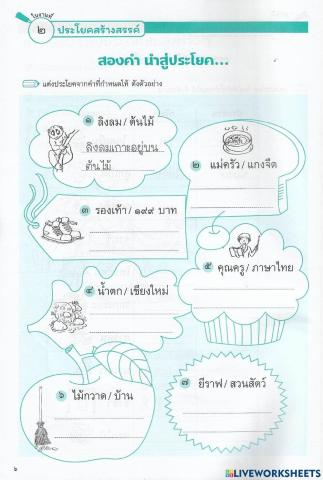 ใบงานที่
๒ ประโยคสร้างสรรค์
สองคำ นำสู่ประโยค...
แต่งประโยคจากคำที่กำหนดให้ ดังตัวอย่าง
๑ ลิงลม / ต้นไม้
ลิงลมเกาะอยู่บน
ต้นไม้
๒ แม่ครัว / แกงจืด
๓ รองเท้า / ๑๙๙ บาท
๕ คุณครู / ภาษาไทย
๔ น้ำตก / เชียงใหม่
๖ ไม้กวาด / บ้าน
๗ ยีราฟ / สวนสัตว์
๖
LIVEWORKSHEETS